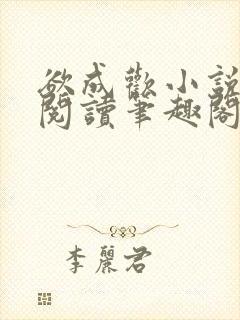 欲成歡小說
閱讀筆趣閣
李麗君